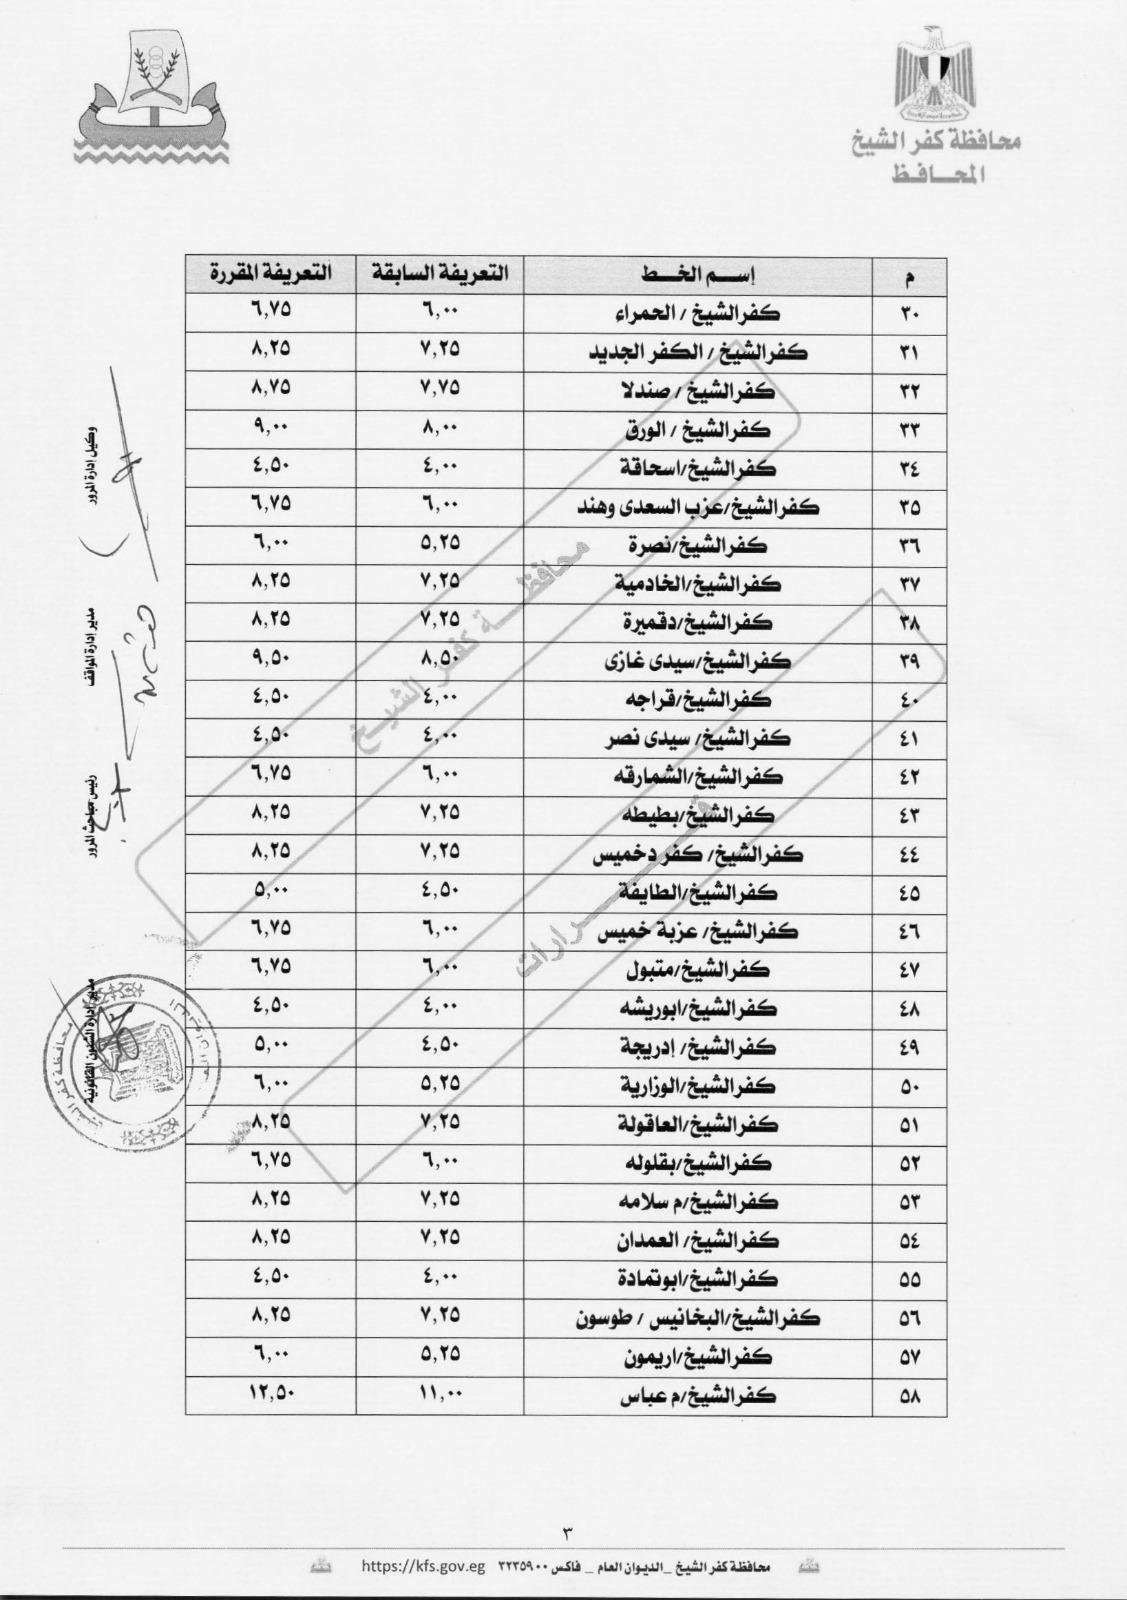 محافظة كفر الشيخ
المحـــافـظ
م إســـم الخـــط التعريفة السابقة التعريفة المقررة
٣٠ كفرالشيخ / الحمراء ٦,٠٠ ٦,٧٥
٣١ كفرالشيخ / الكفر الجديد ٧,٢٥ ٨,٢٥
٣٢ كفرالشيخ / صندلا ٧,٧٥ ٨,٧٥
٣٣ كفرالشيخ / الورق ٨,٠٠ ٩,٠٠
٣٤ كفرالشيخ/اسحاقة ٤,٠٠ ٤,٥٠
٣٥ كفرالشيخ/عزب السعدى وهند ٦,٠٠ ٦,٧٥
٣٦ كفرالشيخ/نصرة ٥,٢٥ ٦,٠٠
٣٧ كفرالشيخ/الخادمية ٧,٢٥ ٨,٢٥
٣٨ كفرالشيخ/دقميرة ٧,٢٥ ٨,٢٥
٣٩ كفرالشيخ/سيدى غازى ٨,٥٠ ٩,٥٠
٤٠ كفرالشيخ/قراجه ٤,٠٠ ٤,٥٠
٤١ كفرالشيخ/ سيدى نصر ٤,٠٠ ٤,٥٠
٤٢ كفرالشيخ/الشمارقه ٦,٠٠ ٦,٧٥
٤٣ كفرالشيخ/بطيطه ٧,٢٥ ٨,٢٥
٤٤ كفرالشيخ/ كفر دخميس ٧,٢٥ ٨,٢٥
٤٥ كفرالشيخ/الطايفة ٤,٥٠ ٥,٠٠
٤٦ كفرالشيخ/ عزبة خميس ٦,٠٠ ٦,٧٥
٤٧ كفرالشيخ/متبول ٦,٠٠ ٦,٧٥
٤٨ كفرالشيخ/ابوريشه ٤,٠٠ ٤,٥٠
٤٩ كفرالشيخ/ إدريجة ٤,٥٠ ٥,٠٠
٥٠ كفرالشيخ/الوزارية ٥,٢٥ ٦,٠٠
٥١ كفرالشيخ/العاقولة ٧,٢٥ ٨,٢٥
٥٢ كفرالشيخ/بقلوله ٦,٠٠ ٦,٧٥
٥٣ كفرالشيخ/م سلامه ٧,٢٥ ٨,٢٥
٥٤ كفرالشيخ/ العمدان ٧,٢٥ ٨,٢٥
٥٥ كفرالشيخ/ابوتمادة ٤,٠٠ ٤,٥٠
٥٦ كفرالشيخ/البخانيس / طوسون ٧,٢٥ ٨,٢٥
٥٧ كفرالشيخ/اريمون ٥,٢٥ ٦,٠٠
٥٨ كفرالشيخ/م عباس ١١,٠٠ ١٢,٥٠
محافظــــة كفر الشيــخ
قـــــرارات
وكيل إدارة المرور
مدير إدارة المواقف
رئيس مباحث المرور
مدير إدارة الشئون القانونية
محافظة كفر الشيخ
٣
محافظة كفر الشيخ _الديوان العام _ فاكس ٣٢٣٥٩٠٠ https://kfs.gov.eg